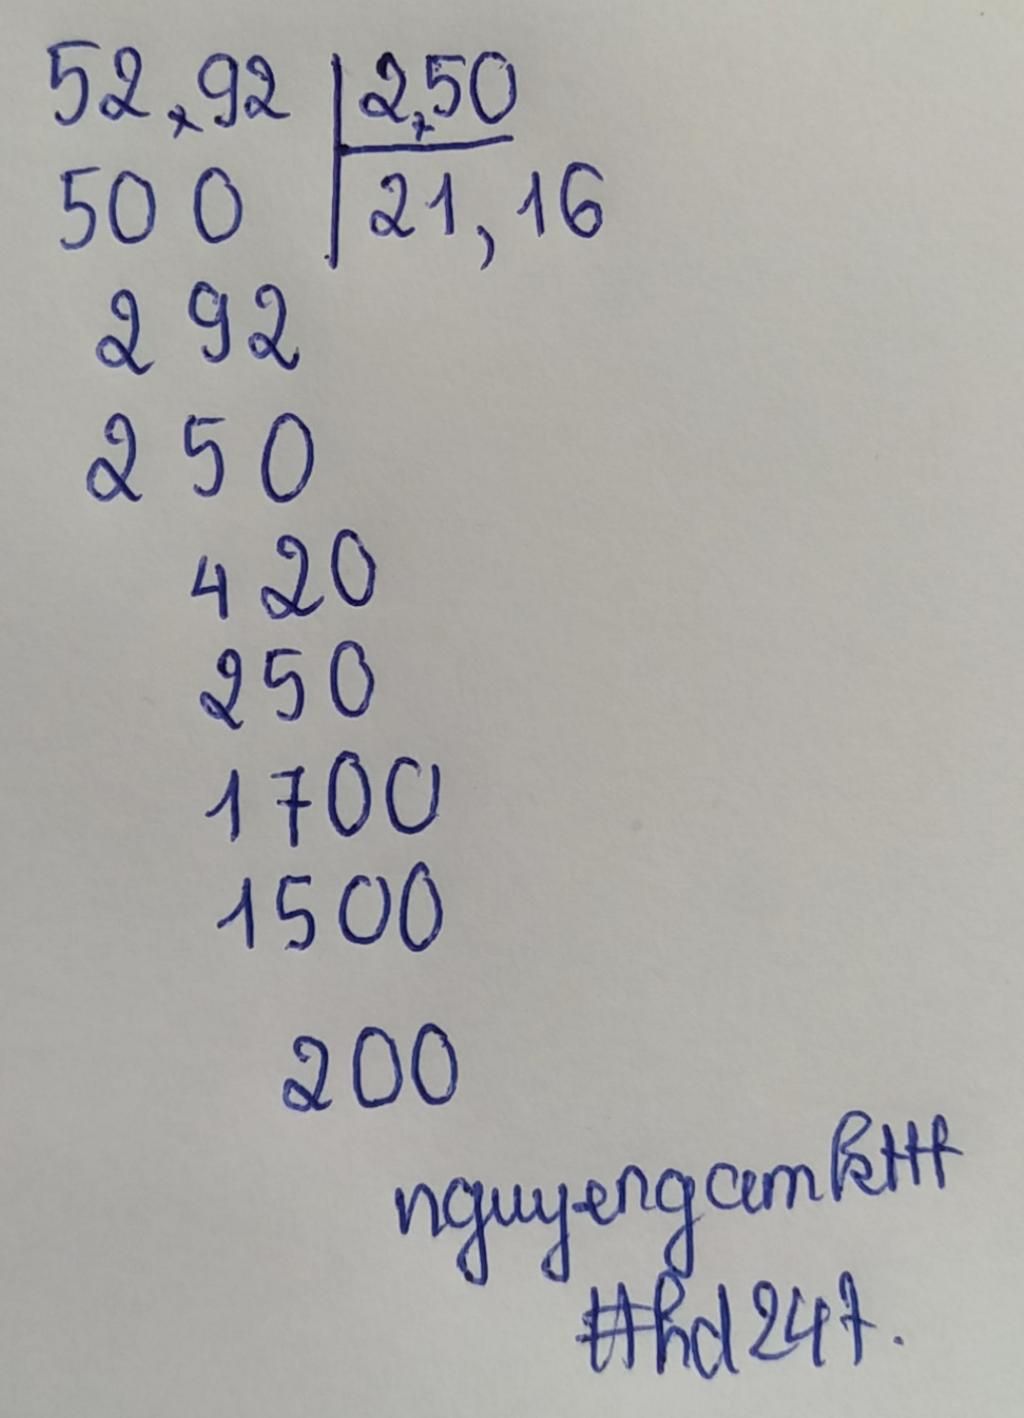 52,92 | 2,50
500 | 21,16
292
250
420
250
1700
1500
200
#hd247.